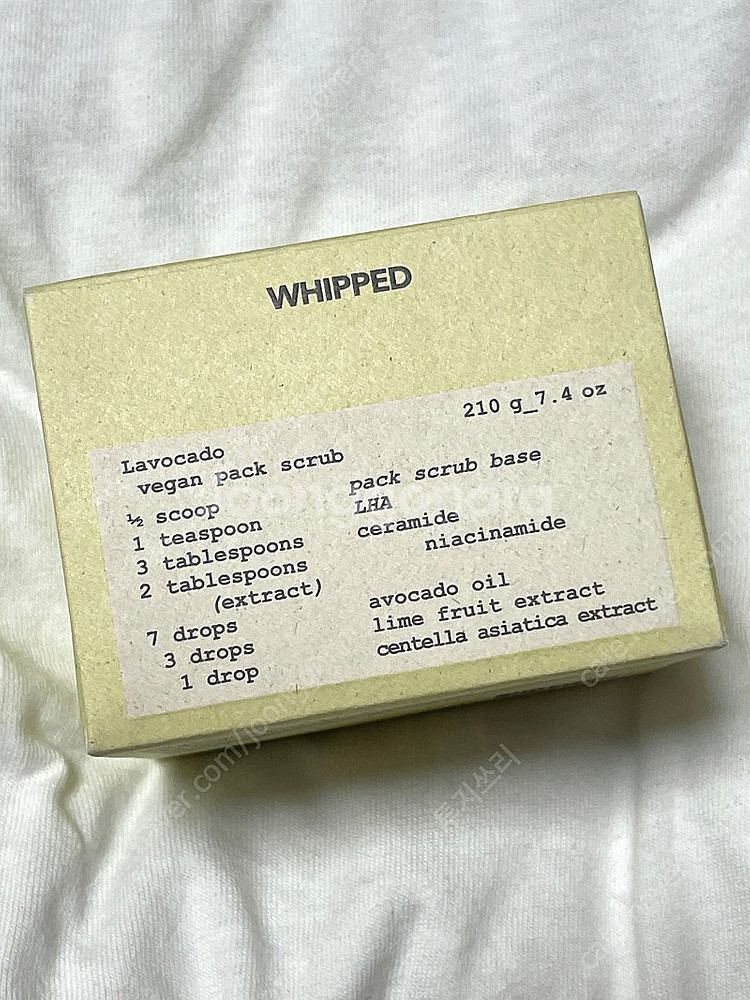 WHIPPED
210 g_7.4 oz
Lavocado
vegan pack scrub
½ scoop pack scrub base
1 teaspoon LHA
3 tablespoons ceramide
2 tablespoons niacinamide
(extract)
7 drops avocado oil
3 drops lime fruit extract
1 drop centella asiatica extract
투지쓰리